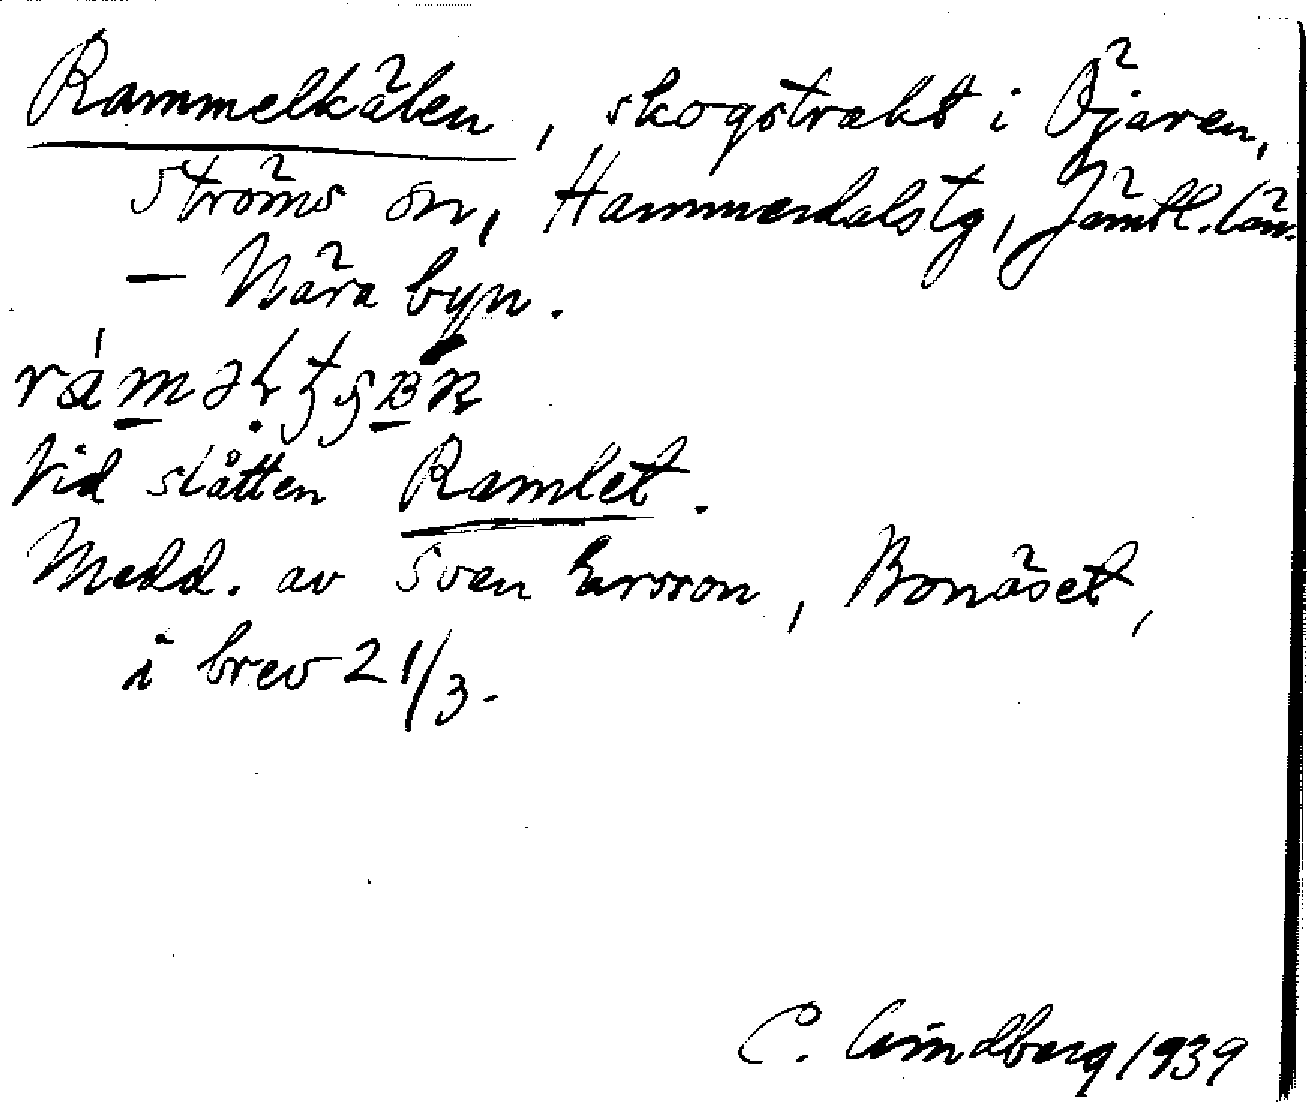 Rammelkälen, skogstrakt i Öjaren,
Ströms sn, Hammerdalstg, Jämtl. län.
— Nära byn.
Vid slåtten Ramlet.
Medd. av Sven Ersson, Bonäset,
i brev 21/3.
C. Lindberg 1939